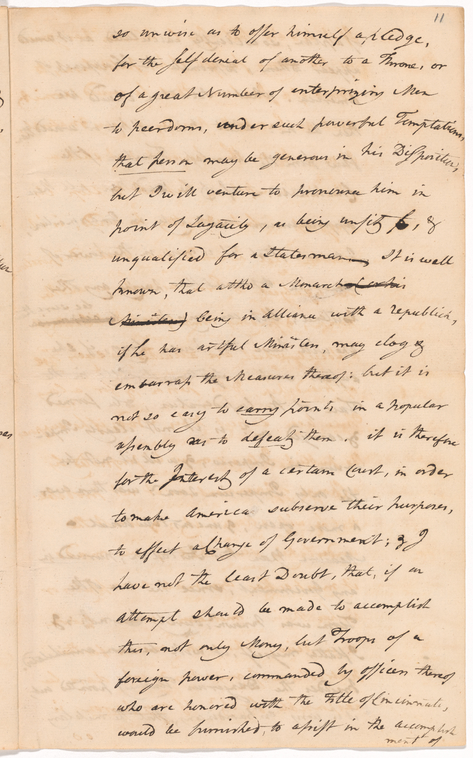 11
so unwise as to offer himself a pledge,
for the self denial of another to a Throne, or
of a great Number of enterprizing Men
to peerdoms, under such powerful Temptations,
that person may be generous in his Disposition,
but I will venture to pronounce him in
point of Sagacity, as being unfit, &
unqualified for a Statesman. It is well
known, that altho a Monarch
Ministers being in alliance with a republick,
if he has artful Ministers, may clog &
embarrass the Measures thereof: but it is
not so easy to carry points in a popular
assembly as to defeat them. it is therefore
for the Interest of a certain Court, in order
to make America subserve their purposes,
to effect a Change of Government; & I
have not the least Doubt, that, if an
attempt should be made to accomplish
this, not only Money, but Troops of a
foreign power, commanded by officers thereof
who are honored with the Title of Cincinnati,
would be furnished, to assist in the accomplish
ment of